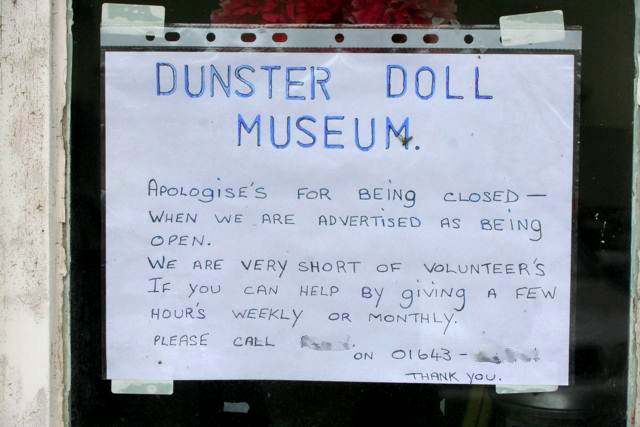 DUNSTER DOLL
MUSEUM.
APOLOGISE'S FOR BEING CLOSED —
WHEN WE ARE ADVERTISED AS BEING
OPEN.
WE ARE VERY SHORT OF VOLUNTEER'S
IF YOU CAN HELP BY giving A FEW
HOUR'S WEEKLY OR MONTHLY.
PLEASE CALL
ON 01643 -
THANK YOU.